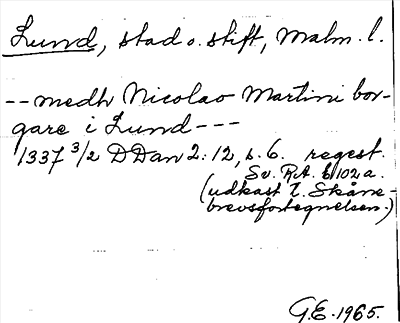 Lund, stad o. stift, Malm. l.
-- medh Nicolao Martini bor-
gare i Lund ---
1337 3/2 DDan 2:12, s. 6. regest.
Sv. R.A. b 102 a.
(udkast t. Skåne-
brevsfortegnelsen.)
G.E. 1965.